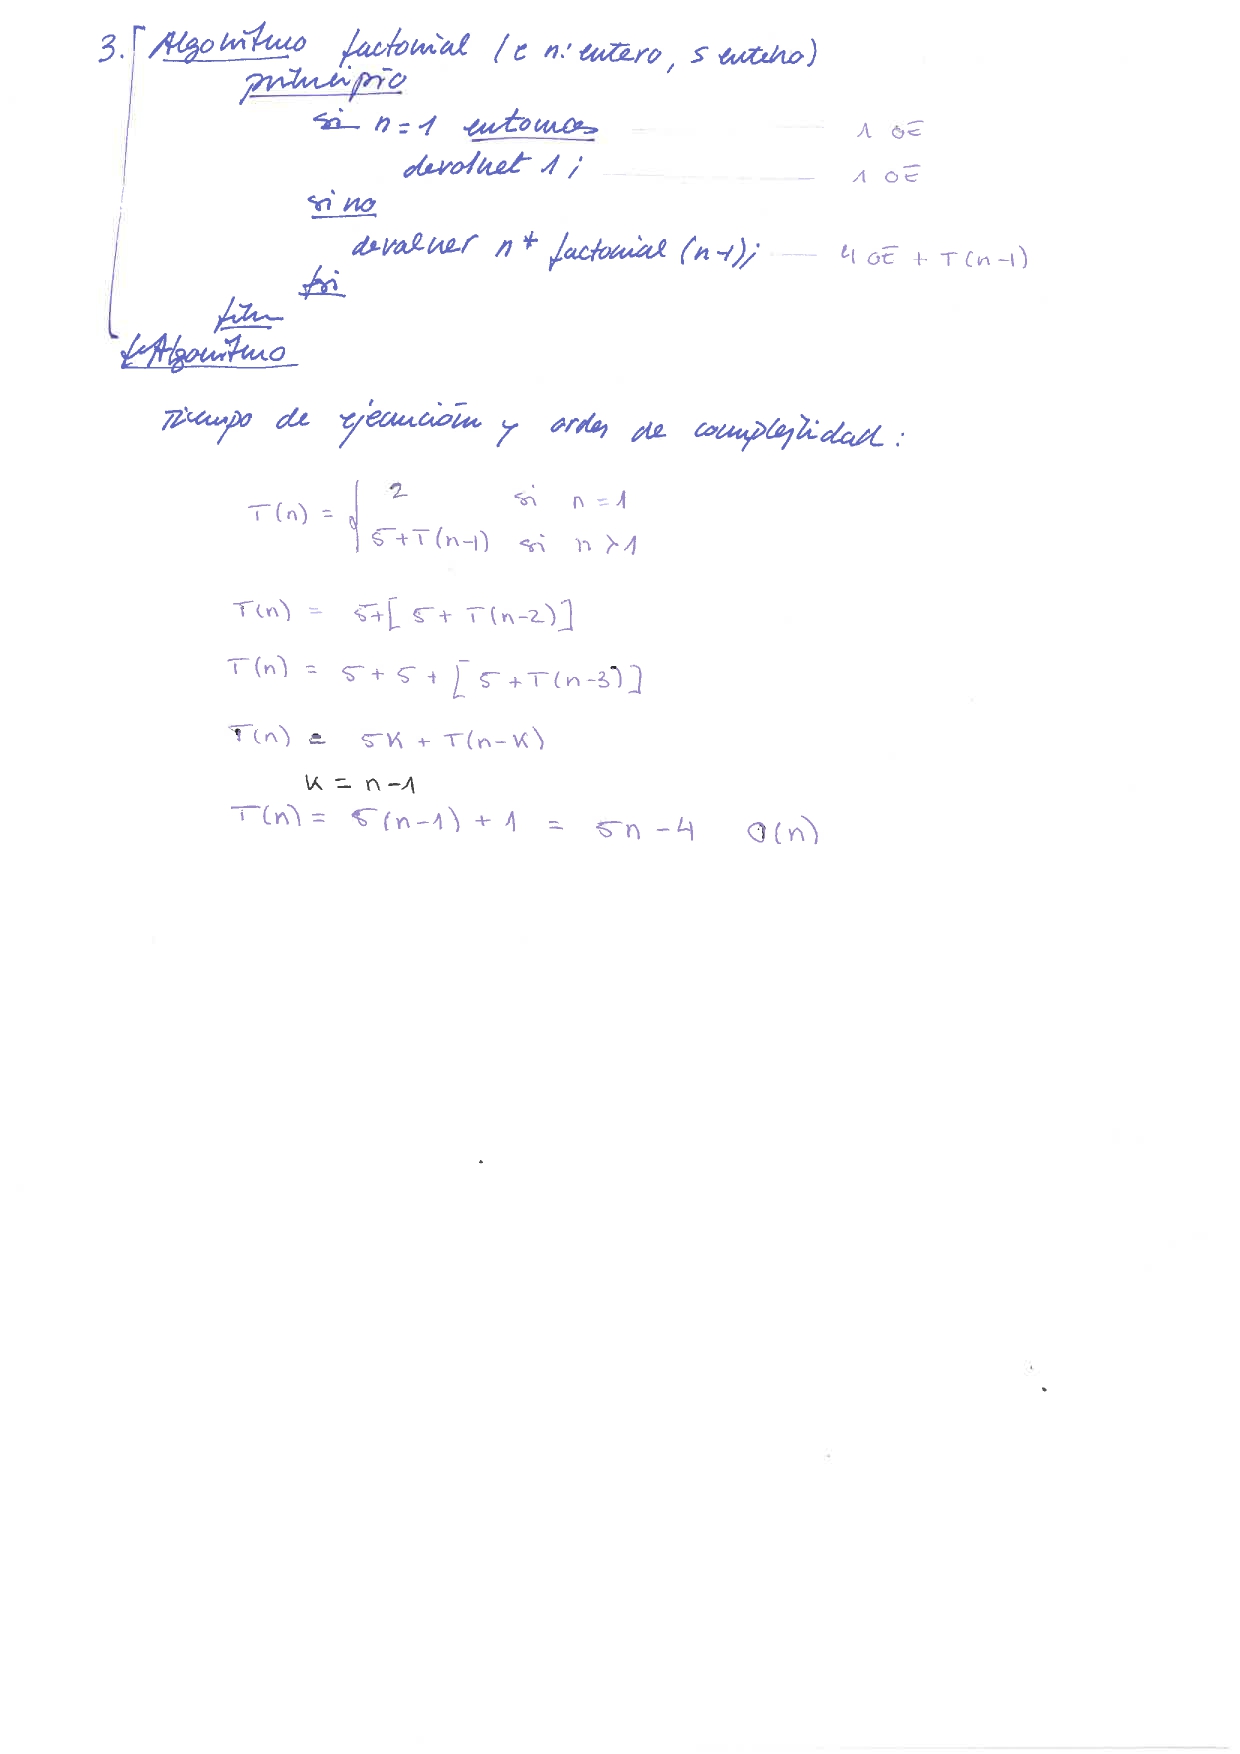 3. Algoritmo factorial (e n: entero, s entero)
principio
si n = 1 entonces 1 OE
devolver 1; 1 OE
si no
devolver n * factorial (n-1); 4 OE + T(n-1)
fsi
fin
fAlgoritmo
Tiempo de ejecución y orden de complejidad:
T(n) = { 2 si n = 1
5 + T(n-1) si n > 1
T(n) = 5+[5 + T(n-2)]
T(n) = 5 + 5 + [5 + T(n-3)]
T(n) = 5K + T(n-K)
K = n-1
T(n) = 5(n-1) + 1 = 5n - 4 O(n)